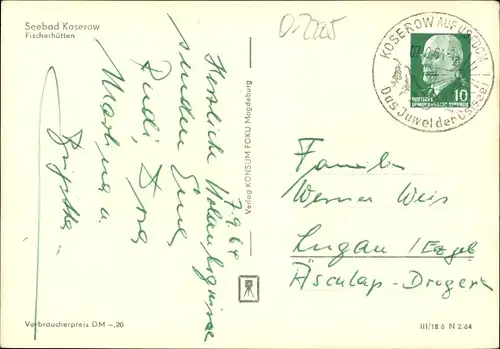 Seebad Koserow
Fischerhütten
7.9.64
Herzliche Urlaubsgrüsse
senden Euch
Rudi,
Martina u.
Brigitte
Verlag KONSUM FOKU Magdeburg
KOSEROW AUF USEDOM
Das Juwel der Ostsee
10
DEUTSCHE
DEMOKRATISCHE REPUBLIK
Familie
Werner Weis
Lugau / Erzgeb
Äsculap-Drogerie
Verbraucherpreis DM -,20
III/18 6 N 2/64